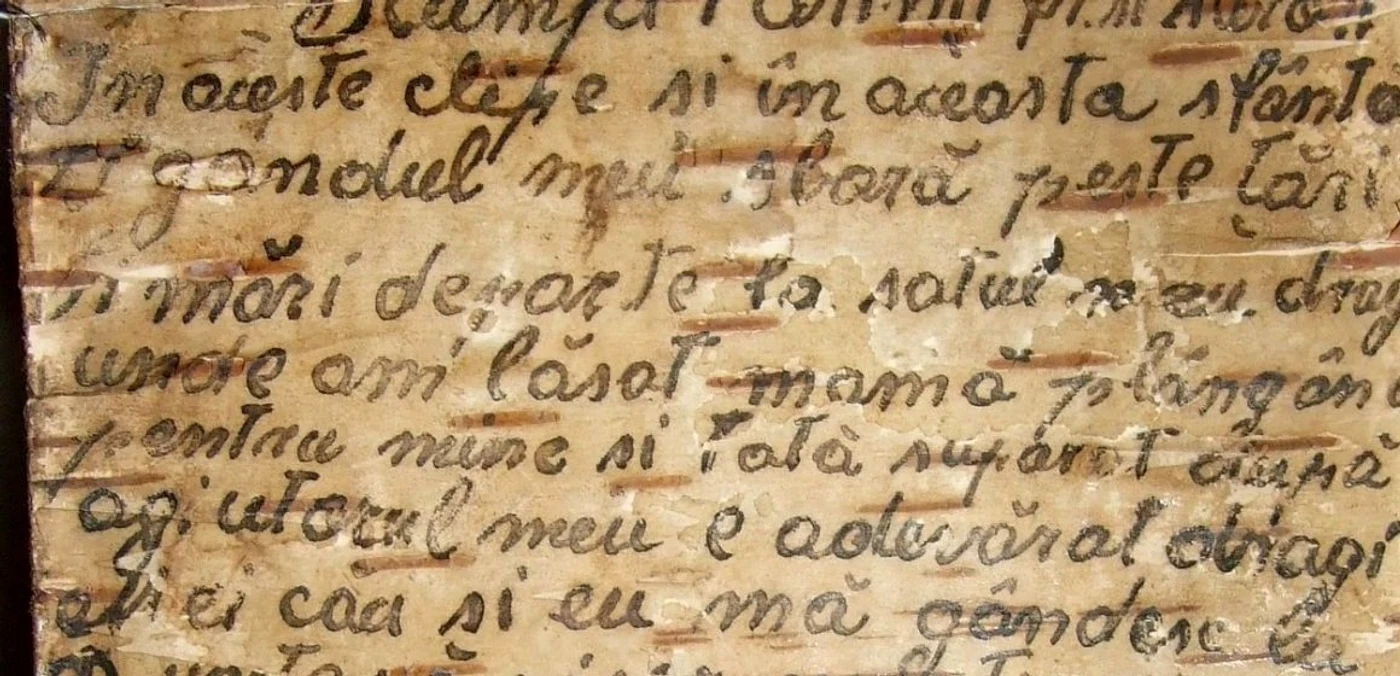 În aceste clipe si în aceasta sfântă
zi gandul meu sboară peste țări
si mări departe la satul meu drag
unde am lăsat mamă plângân
pentru mine si tată suparat după
agiutorul meu e adevărat dragi
ei căci si eu mă gândesc la